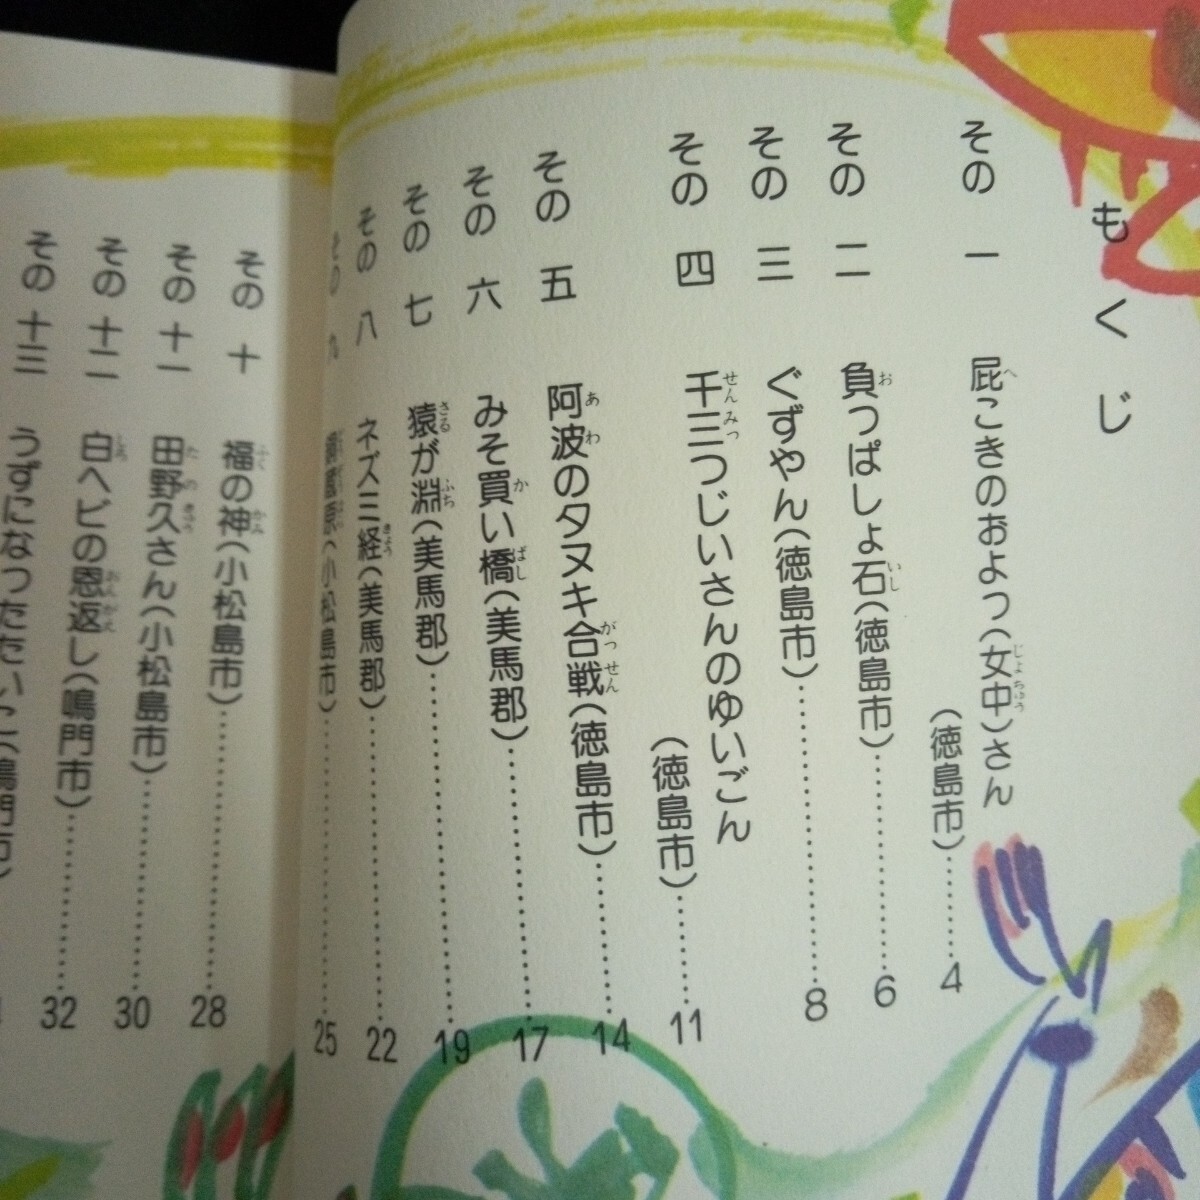 もくじ
その一 屁こきのおよつ(女中)さん
(徳島市)…………4
その二 負つぱしょ石(徳島市)…………6
その三 ぐずやん(徳島市)…………8
その四 千三つじいさんのゆいごん
(徳島市)…………11
その五 阿波のタヌキ合戦(徳島市)…………14
その六 みそ買い橋(美馬郡)…………17
その七 猿が淵(美馬郡)…………19
その八 ネズミ経(美馬郡)…………22
その九 (小松島市)…………25
その十 福の神(小松島市)…………28
その十一 田野久さん(小松島市)…………30
その十二 白ヘビの恩返し(鳴門市)…………32
その十三 うずになったたいこ(鳴門市)